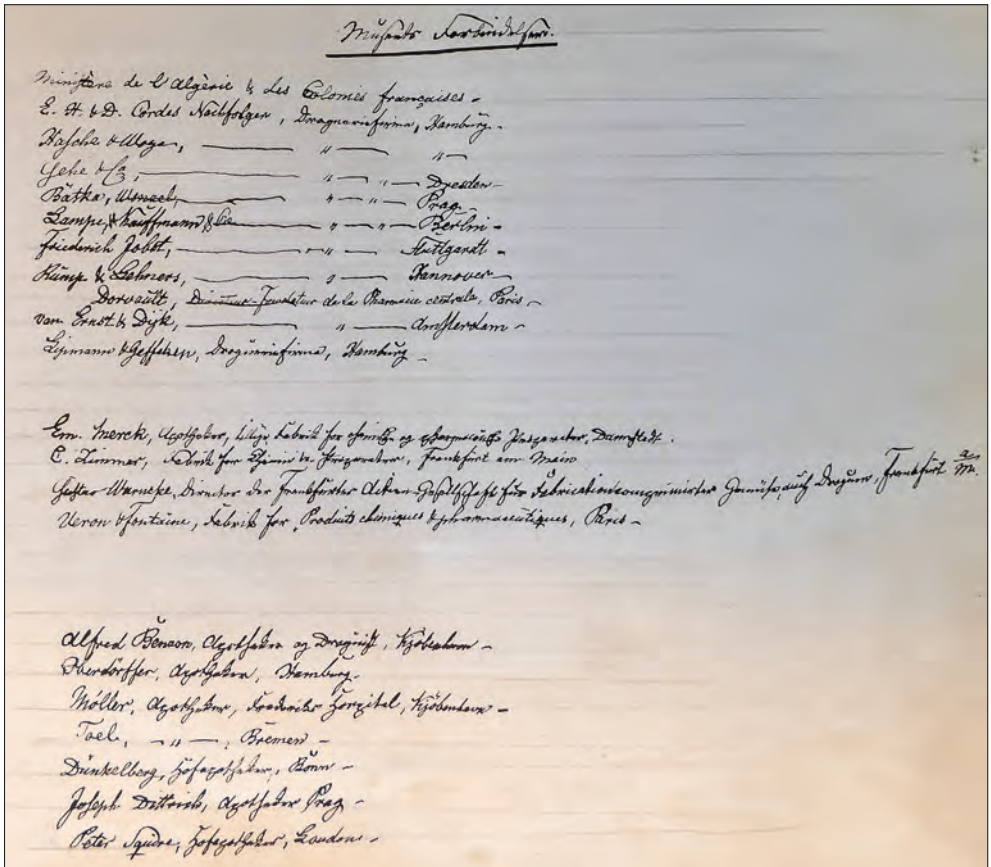 Museets Forbindelser.
Ministère de l'Algérie & des Colonies françaises -
E. H. & D. Cordes Nachfolger, Drogueriefirma, Hamburg.
Hasche & Woge, — " — " —
Gehe & Co, — " — " — Dresden -
Batka, Wenzel, — " — " — Prag -
Lampe, Kauffmann & Co — " — " — Berlin -
Friederich Jobst, — " — " — Stuttgardt -
Rump & Lehners, — " — Hannover -
Dorvault, fondateur de la Pharmacie centrale, Paris, -
van Ernst & Dijk, — " — Amsterdam -
& Geffcken, Droguerifirma, Hamburg -
Em. Merck, Apotheker, tillige Fabrik for chemiske og pharmaceutiske Præparater, Darmstadt.
C. Zimmer, Fabrik for Præparater, Frankfurt am Main
Gustav Warnecke, Director der Frankfurter Actien-Gesellschaft für Fabrication comprimirter Gemüse, auch Droguen, Frankfurt a. M.
Veron & Fontaine, Fabrik for Produits chimiques & pharmaceutiques, Paris -
Alfred Benzon, Apotheker og Droguist, Kjöbenhavn -
Oberdörffer, Apotheker, Hamburg.
Möller, Apotheker, Frederiks Hospital, Kjöbenhavn -
Toel, — " —, Bremen -
Dunkelberg, Hofapotheker, Bonn -
Joseph Dittrich, Apotheker Prag -
Peter Squire, Hofapotheker, London -